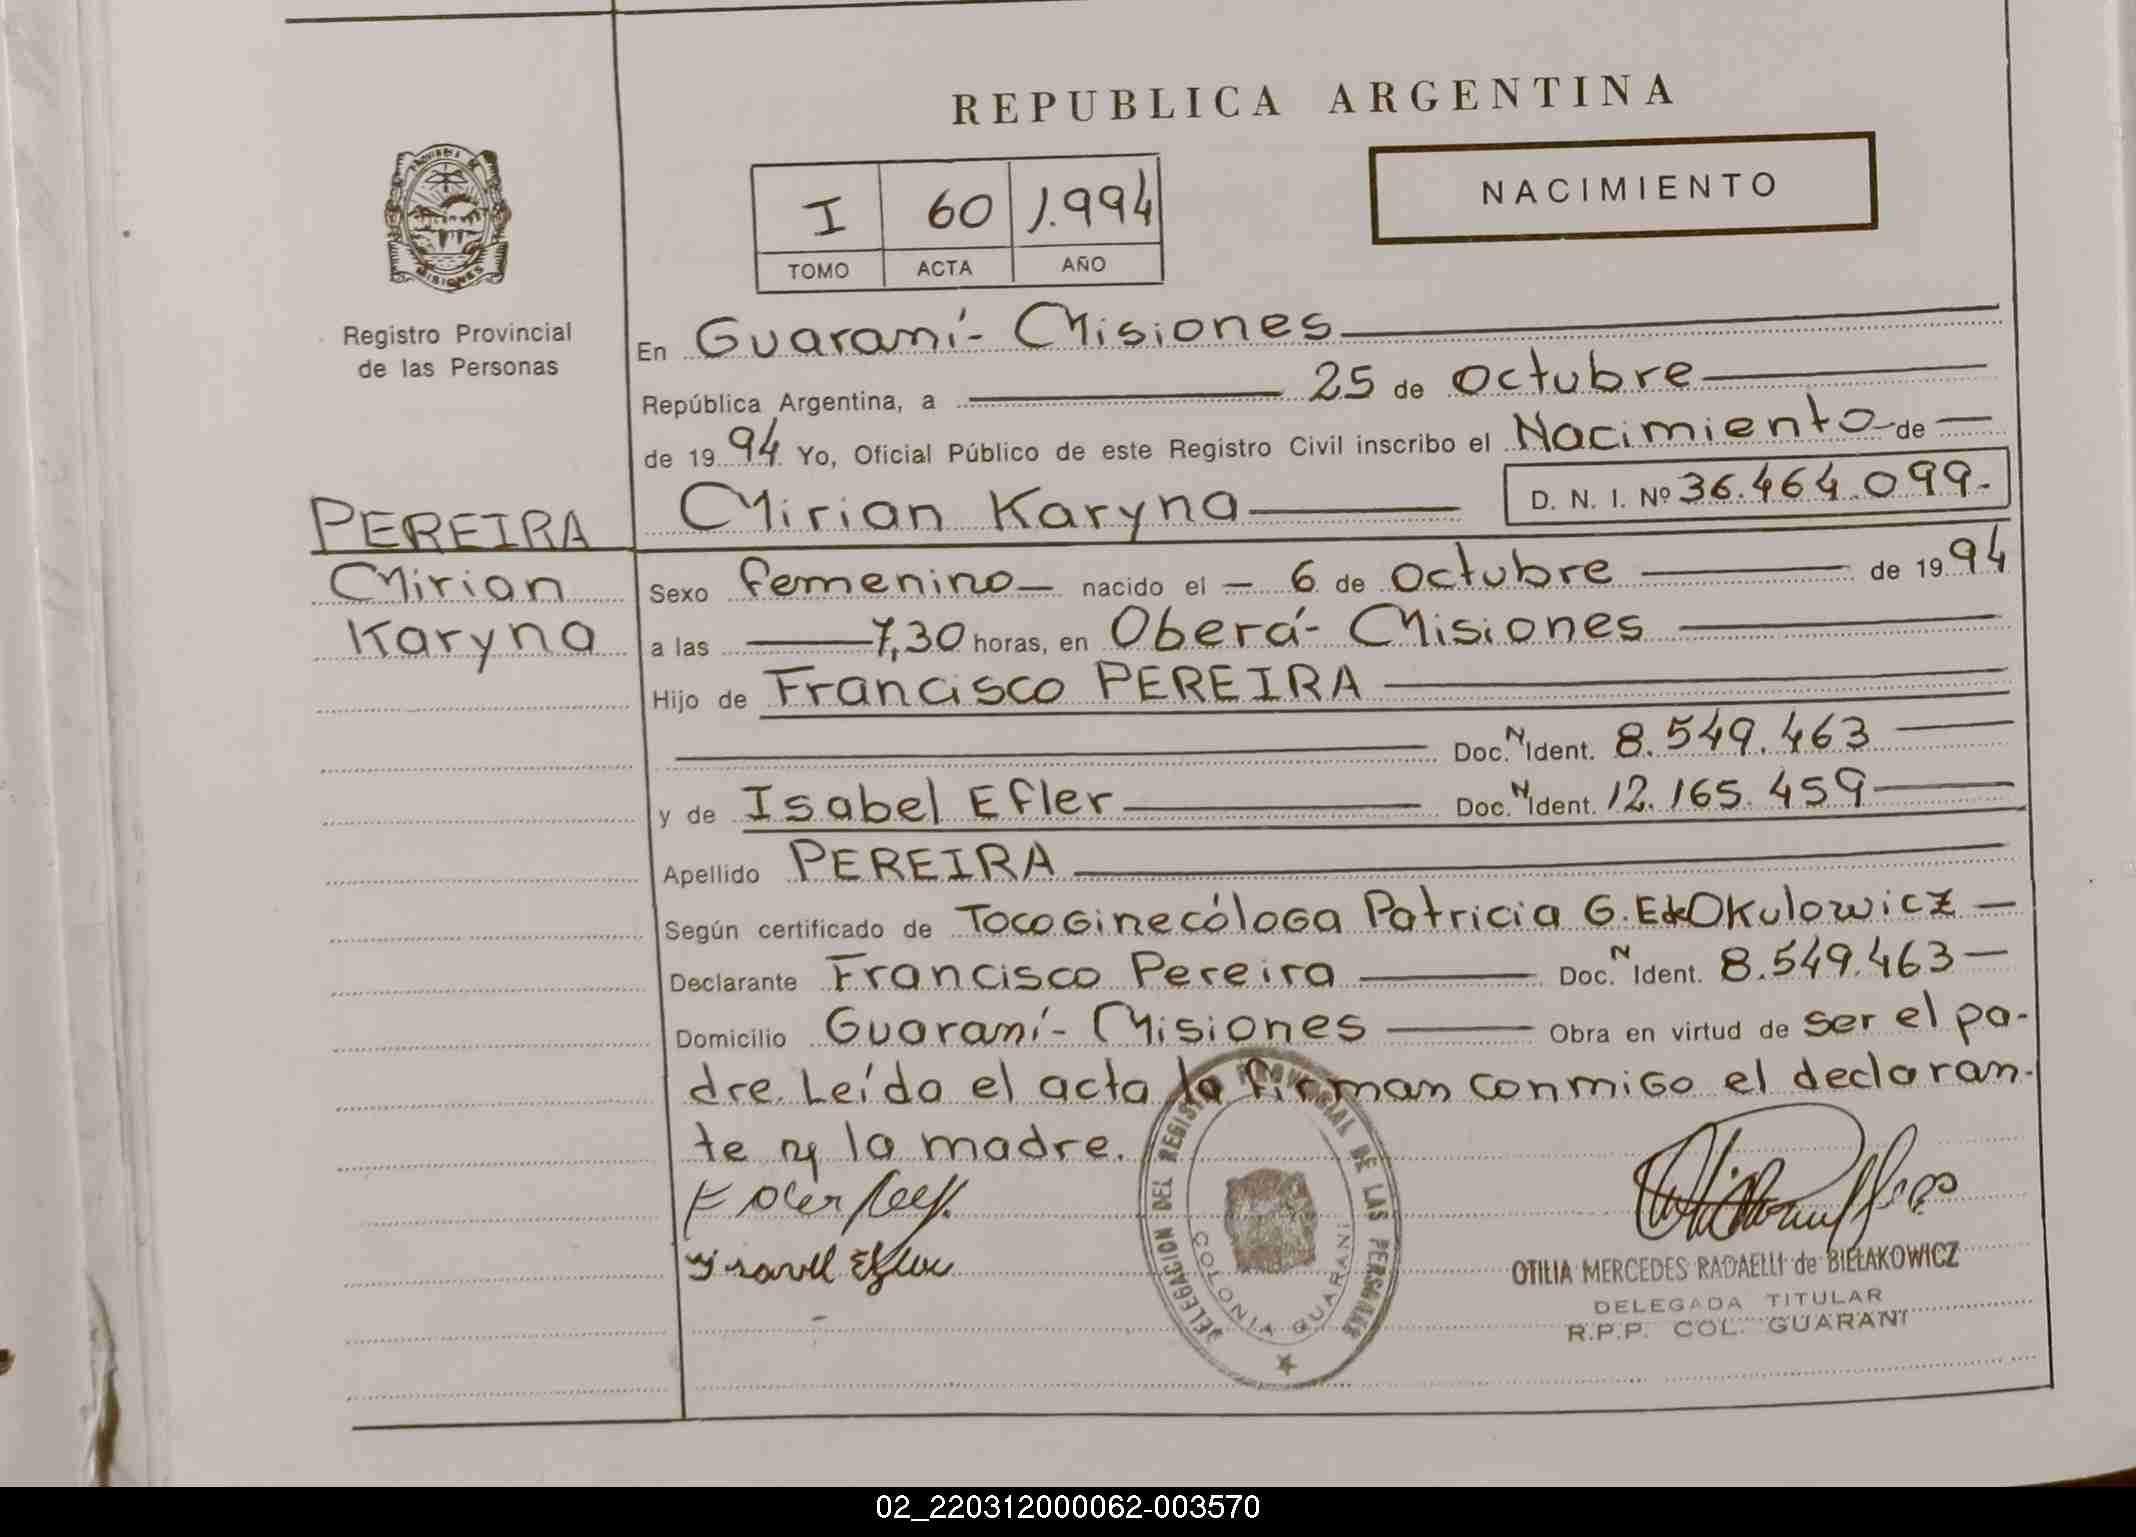 REPUBLICA ARGENTINA
NACIMIENTO
I 60 1.994
TOMO ACTA AÑO
PROVINCIA DE
MISIONES
Registro Provincial
de las Personas
En Guaraní- Misiones
República Argentina, a 25 de octubre
de 1994 Yo, Oficial Público de este Registro Civil inscribo el Nacimiento de
Mirian Karyna D. N. I. Nº 36.464.099.-
PEREIRA
Mirian
Karyna
Sexo femenino nacido el 6 de octubre de 1994
a las 7,30 horas, en Oberá- Misiones
Hijo de Francisco PEREIRA
Doc. N Ident. 8.549.463
y de Isabel Efler Doc. N Ident. 12.165.459
Apellido PEREIRA
Según certificado de TocoGinecóloGa Patricia G. E. Okulowicz
Declarante Francisco Pereira Doc. N Ident. 8.549.463
Domicilio Guaraní- Misiones Obra en virtud de ser el pa-
dre. Leído el acta la firman conmiGo el declaran-
te y la madre.
DELEGACION DEL REGISTRO PROVINCIAL DE LAS PERSONAS
COLONIA GUARANI
OTILIA MERCEDES RADAELLI de BIELAKOWICZ
DELEGADA TITULAR
R.P.P. COL. GUARANI
02_220312000062-003570